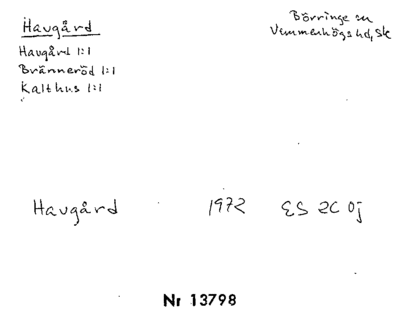 Havgård
Havgård 1:1
Bränneröd 1:1
Kalthus 1:1
Börringe sn
Vemmenhögs hd, Sk
Havgård 1972 ES 2C 0j
Nr 13798